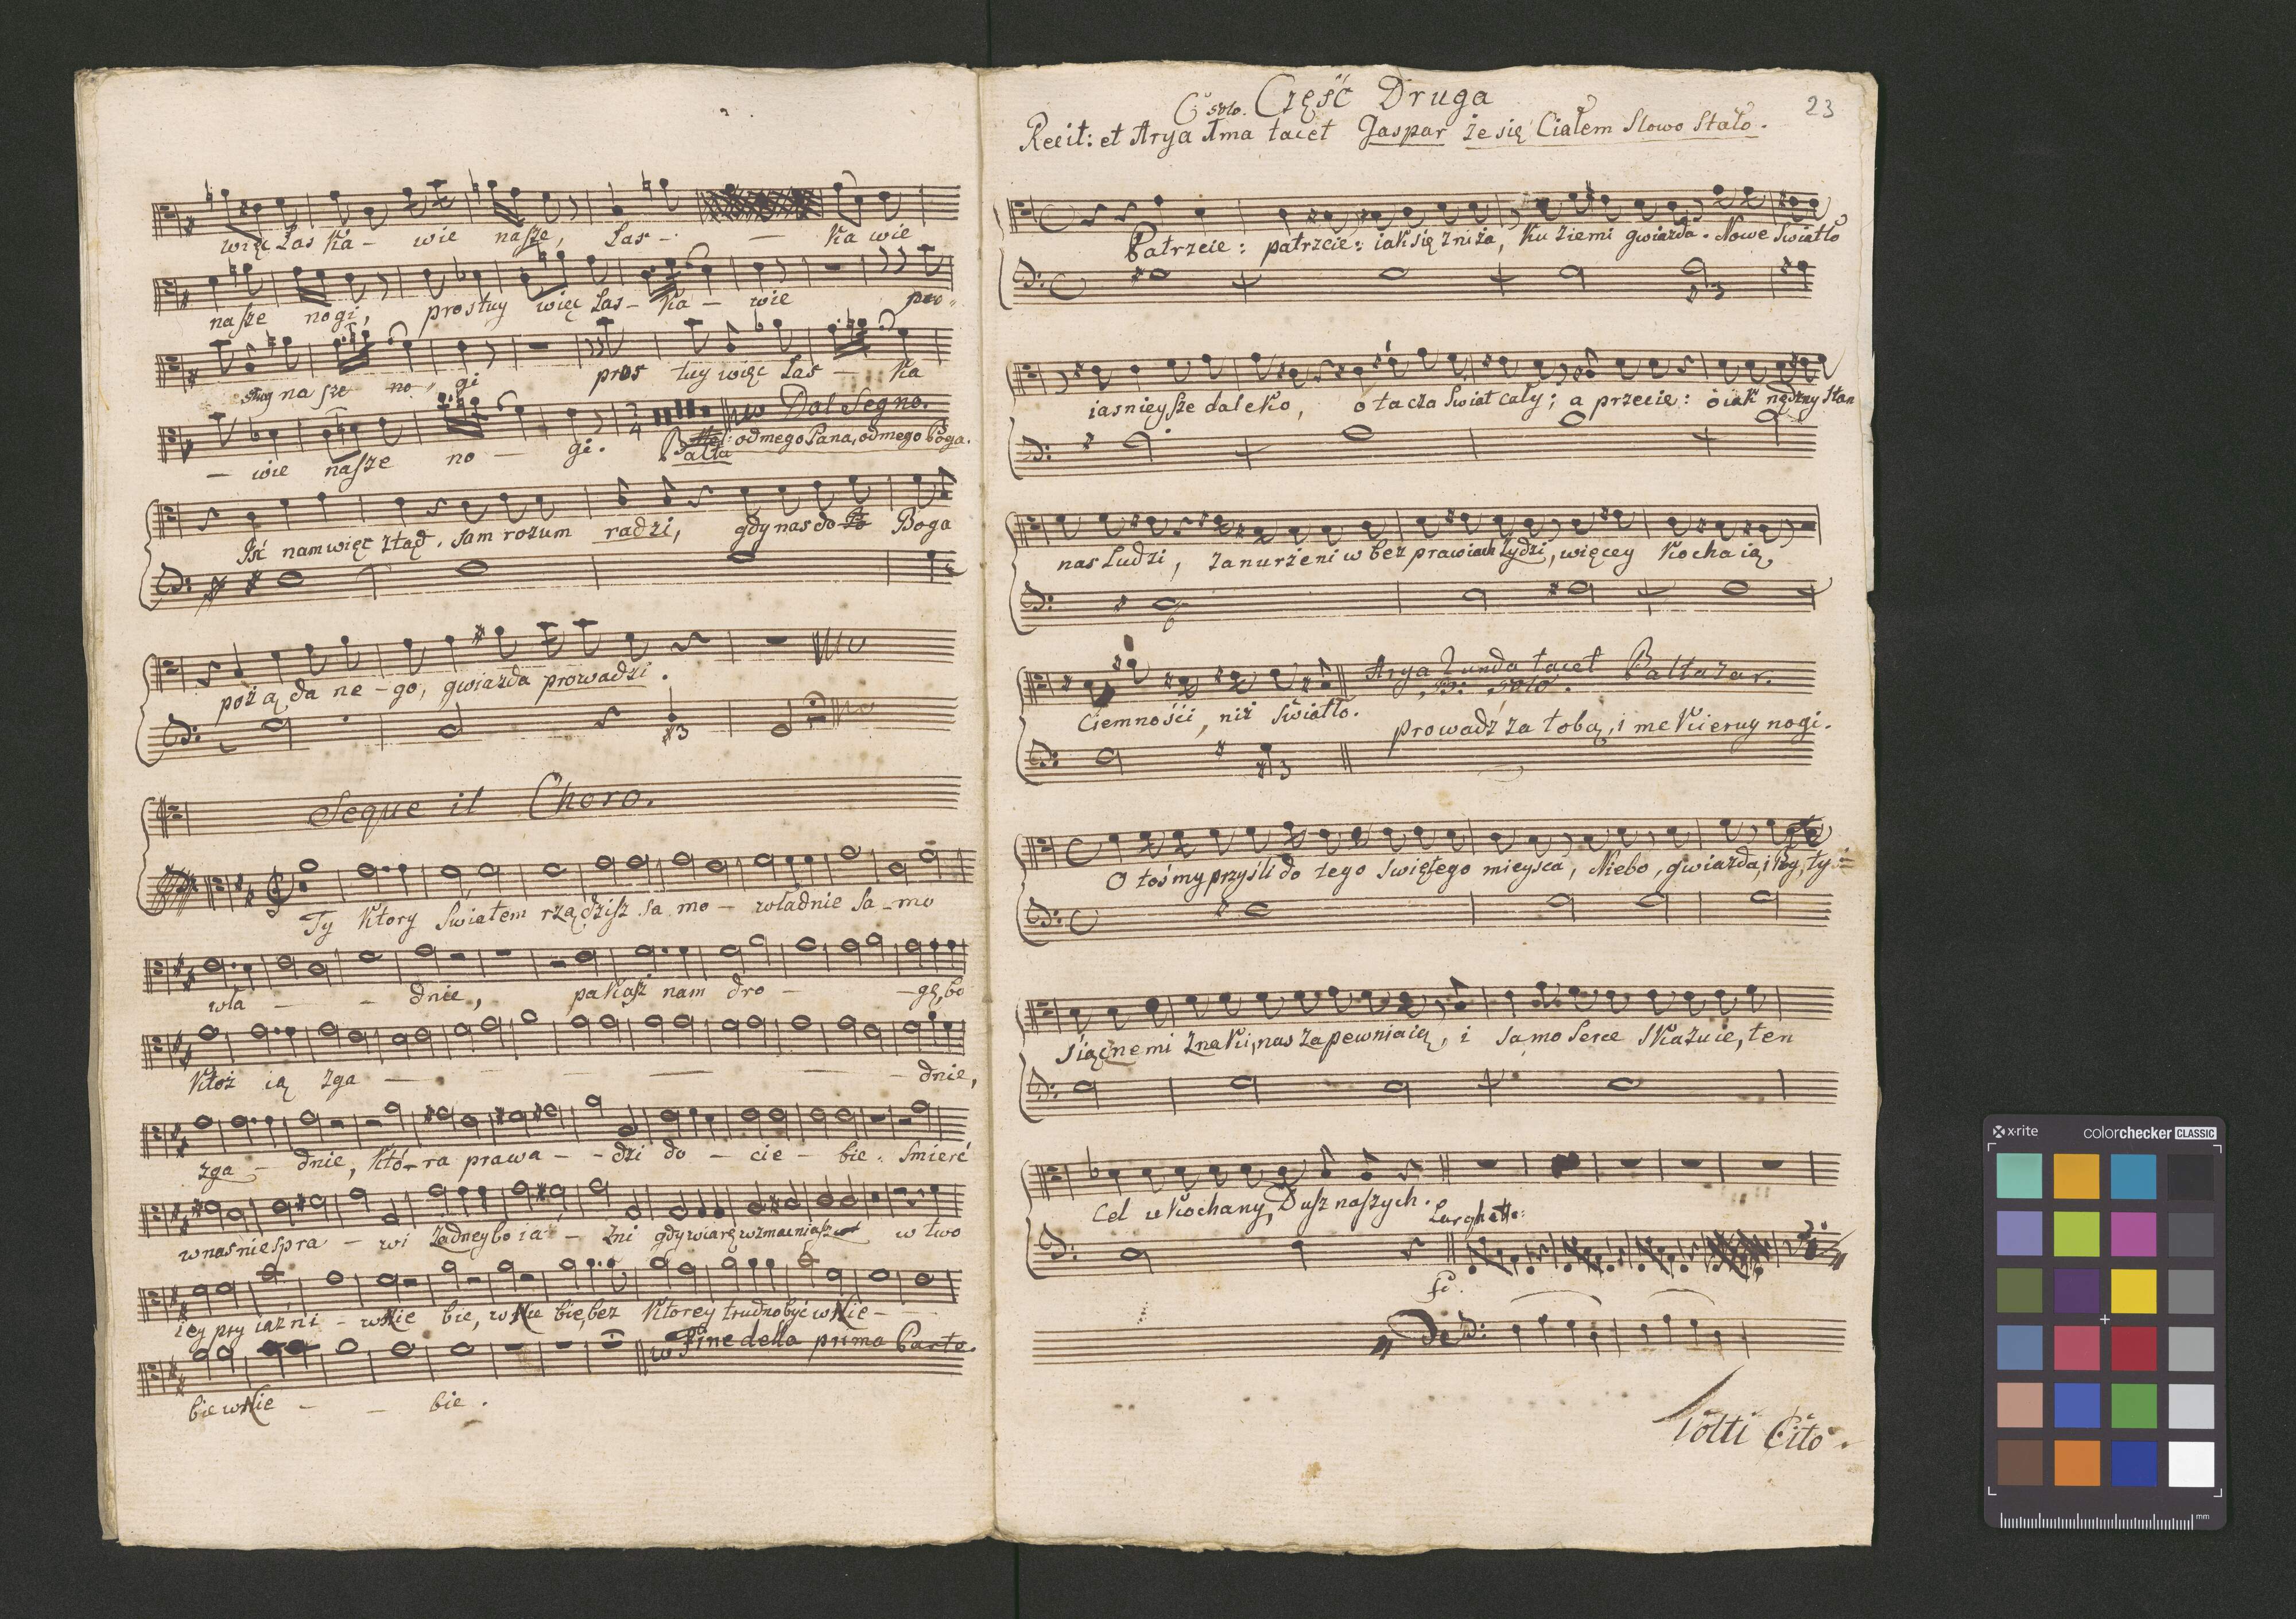 więc Las ka - wie nasze, Las - - ka wie
nasze nogi, prostuy więc Las - ka - wie pro-
stuy na sze no - gi pros tuy więc Las - ka
Dal Segno.
Rec: od mego Pana, od mego Boga.
Balta
- wie nasze no - gi.
Iść nam więc ztąd, sam rozum radzi, gdy nas do Boga
pożąda ne - go, gwiazda prowadzi.
3
Seque il Choro.
Ty Ktory Swiatem rządzisz sa mo - wladnie sa - mo
wla - - dnie, pokasz nam dro - - gę, bo
Któż ią zga - - - - - dnie,
zga - dnie, Któ - ra prawa - - dzi do - cie - bie. Smierć
w nas nie spra - wi żadney bo ia - źni gdy wiarę wzmacniasz w two
iey przy iaźni - w Nie bie, w Nie bie, bez Ktorey trudno być w Nie -
Fine della prima Parte.
bie w Nie - - bie.
23
Część Druga
C solo.
Recit: et Arya 1ma tacet Gaspar że się Ciałem Slowo Stało.
Patrzcie: patrzcie: iak się zniża, ku ziemi gwiazda. Nowe swiatło
3
iasnieysze daleko, o tacza Swiat cały; a przecie: o iak nędzny stan
nas Ludzi, zanurzeni w bez prawiach Żydzi, więcey Kochaią,
6
Arya 2unda tacet Baltazar.
B: solo.
Ciemności, niż światło. prowadź za tobą, i me Kieruy nogi.
3
O tośmy przyśli do tego swiętego mieysca, Niebo, gwiazda, i ty-
siącznemi znaki, nas zapewniaią, i samo Serce skazuie, ten
Cel ukochany, Dusz naszych.
Larghetto:
fo.
Volti Cito.